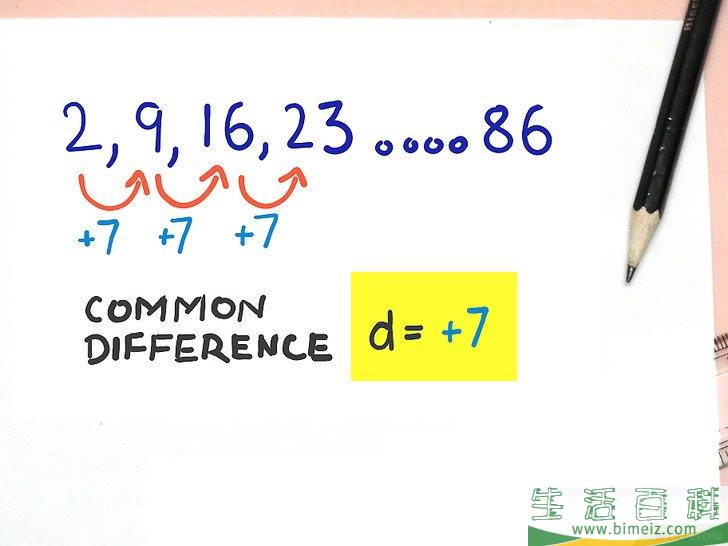 2, 9, 16, 23 .... 86
+7 +7 +7
COMMON
DIFFERENCE
d = +7
生活百科
www.bimeiz.com